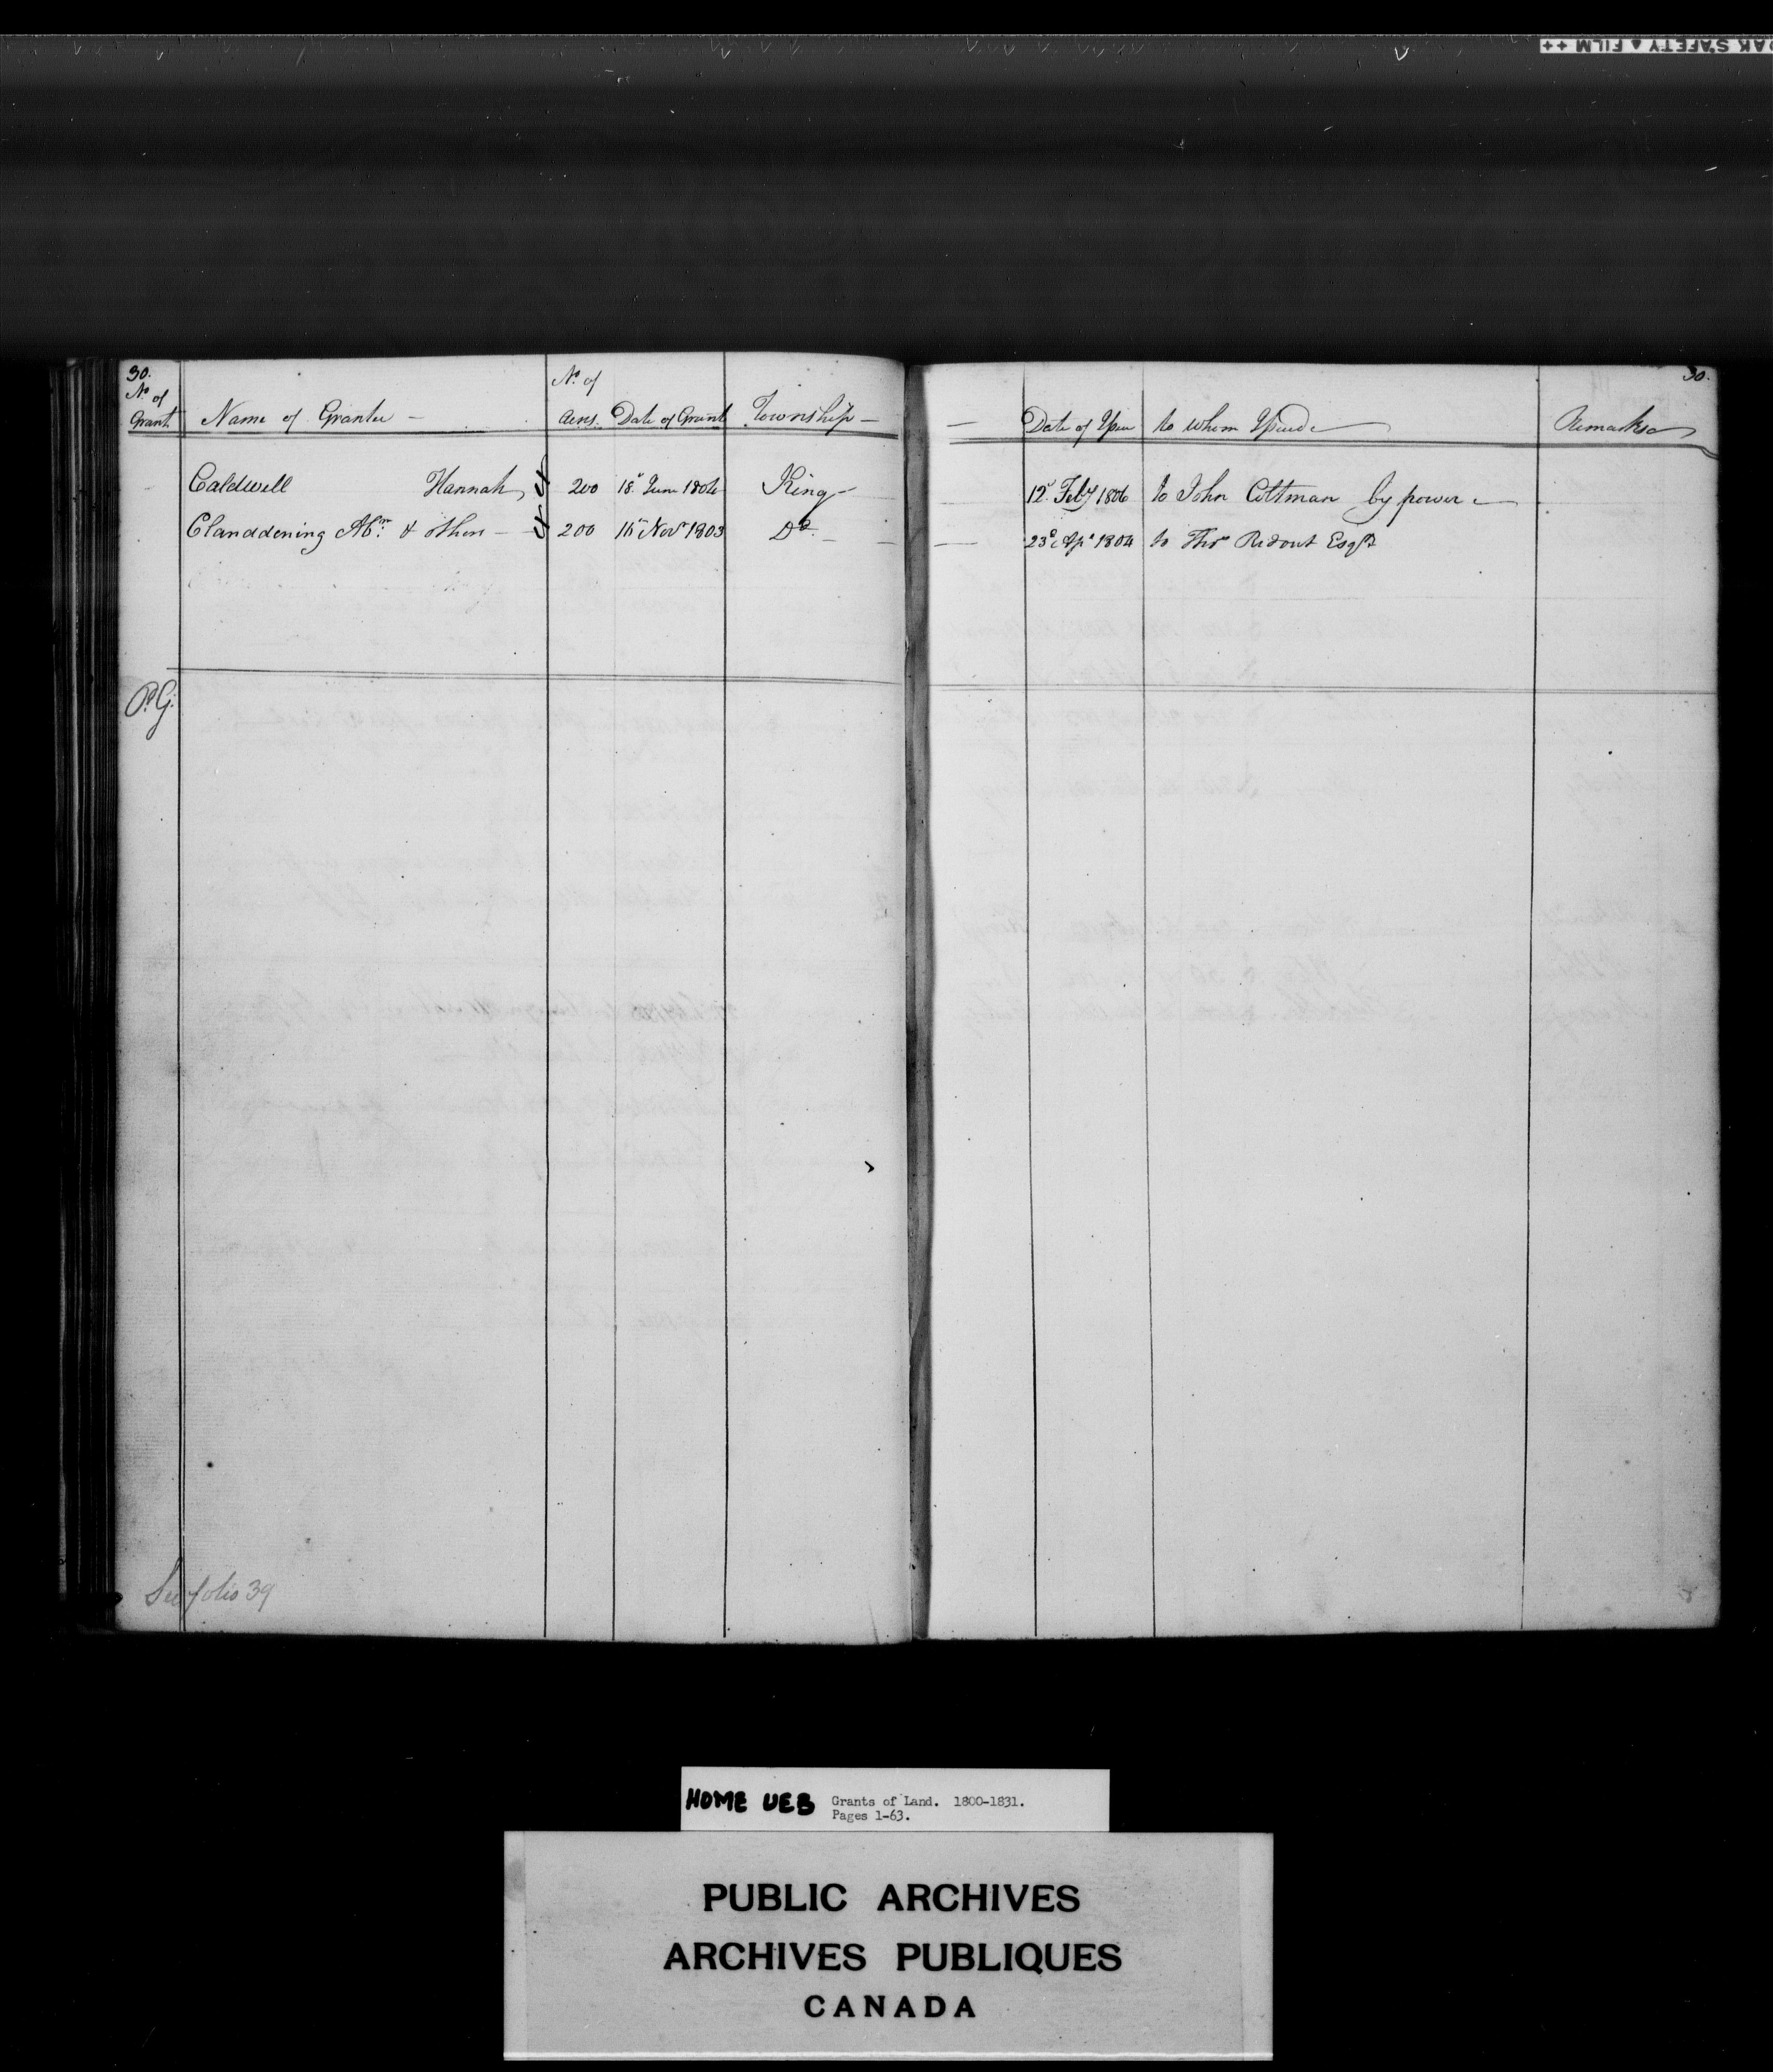 30.
Nº of
Grant.
Name of Grantee –
Nº of
Acres.
Date of Grant
Township –
Caldwell Hannah 200 18th June 1804 King –
Clanddening Abm & others – 200 16th Novr 1803 Dº –
P.G.
See folio 39
30.
Date of Issue
to whom Issued
Remarks
12th Feby 1806 to John Cottman by power
23d Apl 1804 to Thos Ridout Esqr
HOME UEB
Grants of Land. 1800-1831.
Pages 1-63.
PUBLIC ARCHIVES
ARCHIVES PUBLIQUES
CANADA
SAFETY ▲ FILM ++